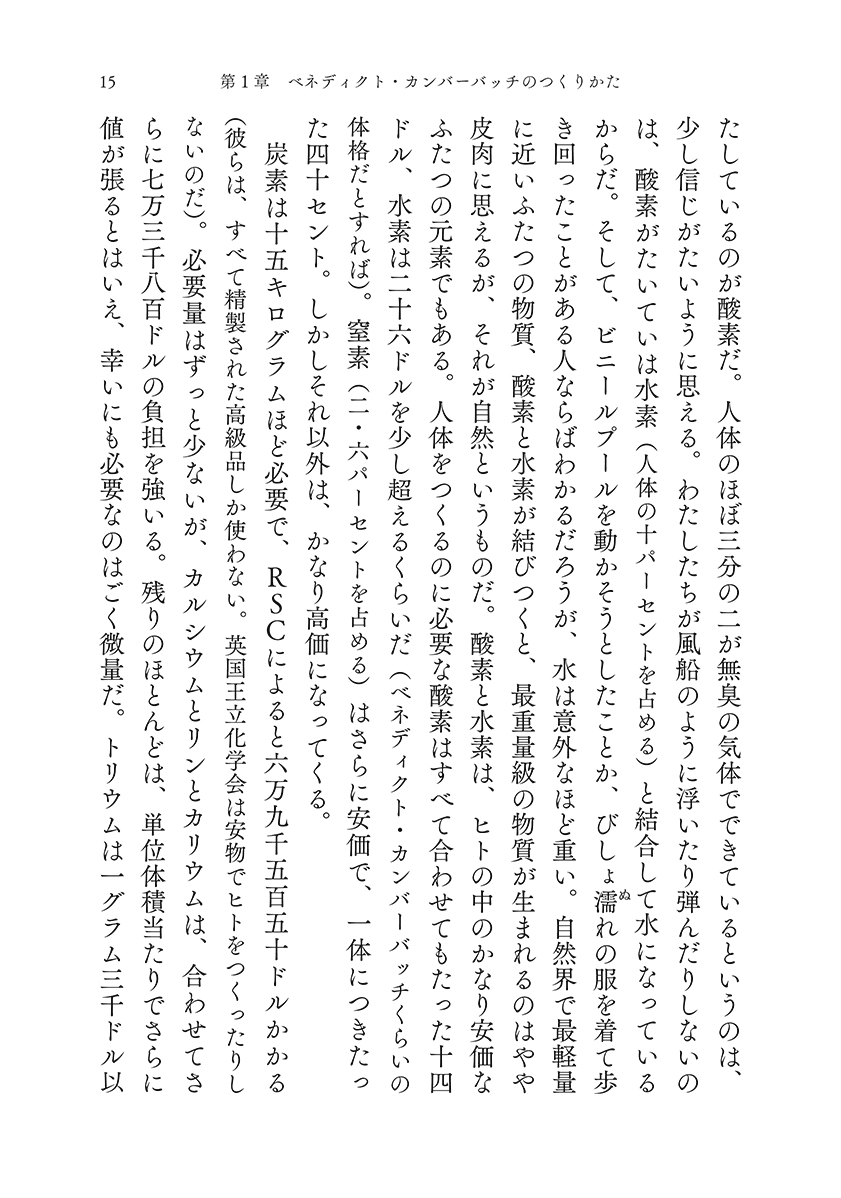 15
第1章　ベネディクト・カンバーバッチのつくりかた
たしているのが酸素だ。人体のほぼ三分の二が無臭の気体でできているというのは、
少し信じがたいように思える。わたしたちが風船のように浮いたり弾んだりしないの
は、酸素がたいていは水素（人体の十パーセントを占める）と結合して水になっている
からだ。そして、ビニールプールを動かそうとしたことか、びしょ濡れの服を着て歩
ぬ
き回ったことがある人ならばわかるだろうが、水は意外なほど重い。自然界で最軽量
に近いふたつの物質、酸素と水素が結びつくと、最重量級の物質が生まれるのはやや
皮肉に思えるが、それが自然というものだ。酸素と水素は、ヒトの中のかなり安価な
ふたつの元素でもある。人体をつくるのに必要な酸素はすべて合わせてもたった十四
ドル、水素は二十六ドルを少し超えるくらいだ（ベネディクト・カンバーバッチくらいの
体格だとすれば）。窒素（二・六パーセントを占める）はさらに安価で、一体につきたっ
た四十セント。しかしそれ以外は、かなり高価になってくる。
炭素は十五キログラムほど必要で、RSCによると六万九千五百五十ドルかかる
（彼らは、すべて精製された高級品しか使わない。英国王立化学会は安物でヒトをつくったりし
ないのだ）。必要量はずっと少ないが、カルシウムとリンとカリウムは、合わせてさ
らに七万三千八百ドルの負担を強いる。残りのほとんどは、単位体積当たりでさらに
値が張るとはいえ、幸いにも必要なのはごく微量だ。トリウムは一グラム三千ドル以